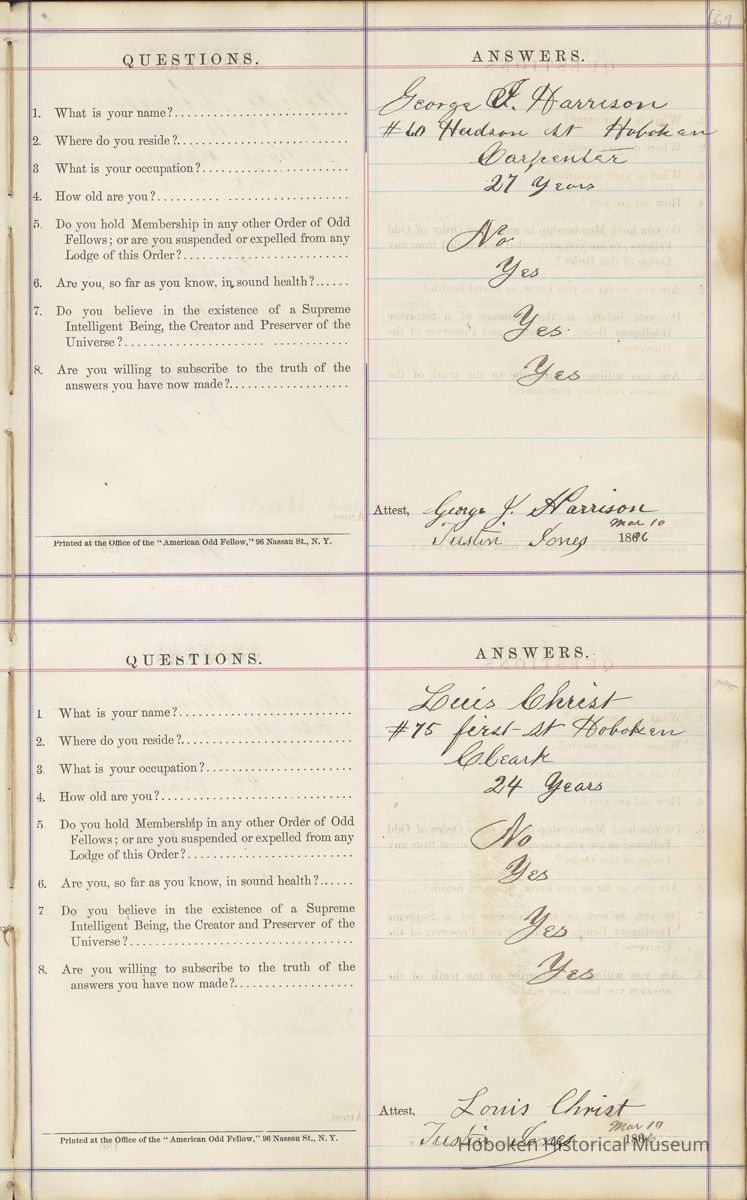 169
QUESTIONS.
ANSWERS.
1. What is your name?
George J. Harrison
2. Where do you reside?
#60 Hudson st Hoboken
3 What is your occupation?
Carpenter
4. How old are you?
27 Years
5. Do you hold Membership in any other Order of Odd
Fellows; or are you suspended or expelled from any
Lodge of this Order?
No
6. Are you, so far as you know, in sound health?
Yes
7. Do you believe in the existence of a Supreme
Intelligent Being, the Creator and Preserver of the
Universe?
Yes
8. Are you willing to subscribe to the truth of the
answers you have now made?
Yes
Attest, George J. Harrison
Mar 10
Justin Jones 186
Printed at the Office of the "American Odd Fellow," 96 Nassau St., N. Y.
QUESTIONS.
ANSWERS.
1 What is your name?
Luis Christ
2. Where do you reside?
#75 first-st Hoboken
3. What is your occupation?
Cleark
4. How old are you?
24 Years
5. Do you hold Membership in any other Order of Odd
Fellows; or are you suspended or expelled from any
Lodge of this Order?
No
6. Are you, so far as you know, in sound health?
Yes
7 Do you believe in the existence of a Supreme
Intelligent Being, the Creator and Preserver of the
Universe?
Yes
8. Are you willing to subscribe to the truth of the
answers you have now made?
Yes
Attest, Louis Christ
Mar 19
Justin Jones 186
Printed at the Office of the "American Odd Fellow," 96 Nassau St., N. Y.
Hoboken Historical Museum